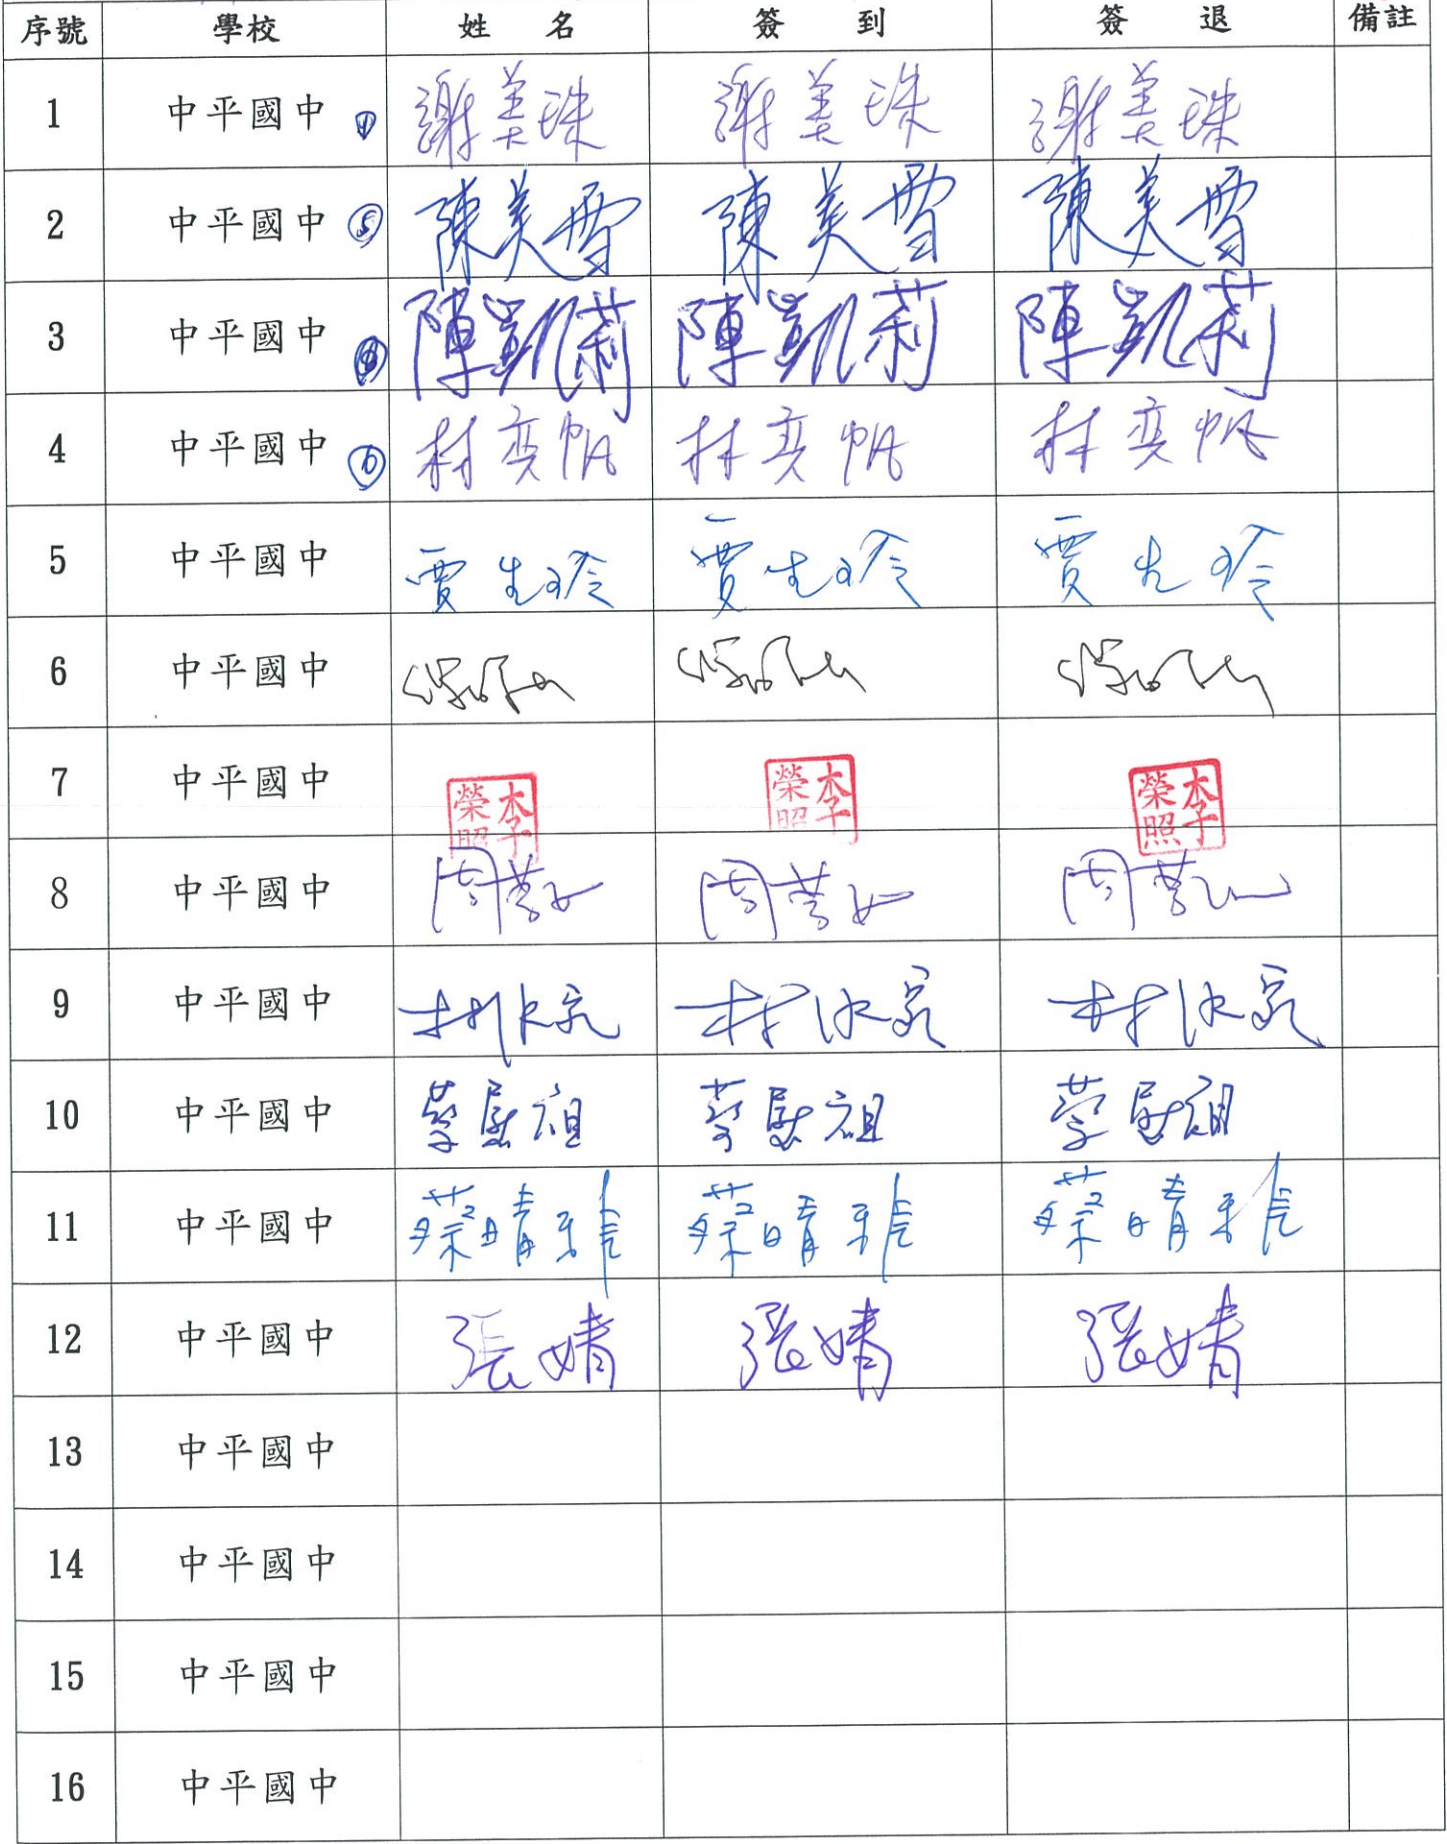 序號 學校 姓名 簽到 簽退 備註
1 中平國中 ① 謝美珠 謝美珠 謝美珠
2 中平國中 ⑤ 陳美雪 陳美雪 陳美雪
3 中平國中 陳凱莉 陳凱莉 陳凱莉
4 中平國中 林奕帆 林奕帆 林奕帆
5 中平國中 賈 玲 賈 玲 賈 玲
6 中平國中
7 中平國中 李榮照 李榮照 李榮照
8 中平國中 周 周 周
9 中平國中 林 林 林
10 中平國中 慰祖 慰祖 慰祖
11 中平國中 蔡晴雅 蔡晴雅 蔡晴雅
12 中平國中 張婧 張婧 張婧
13 中平國中
14 中平國中
15 中平國中
16 中平國中